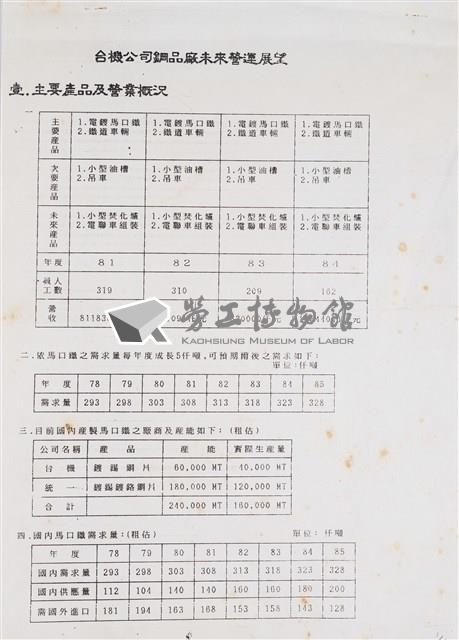 台機公司鋼品廠未來營運展望
壹.主要產品及營業概況
一
主要產品 1.電鍍馬口鐵 1.電鍍馬口鐵 1.電鍍馬口鐵 1.電鍍馬口鐵
2.鐵道車輛 2.鐵道車輛 2.鐵道車輛 2.鐵道車輛
次要產品 1.小型油槽 1.小型油槽 1.小型油槽 1.小型油槽
2.吊車 2.吊車 2.吊車 2.吊車
未來產品 1.小型焚化爐 1.小型焚化爐 1.小型焚化爐 1.小型焚化爐
2.電聯車組裝 2.電聯車組裝 2.電聯車組裝 2.電聯車組裝
年度 81 82 83 84
員工人數 319 310 209 162
營收
勞工博物館
KAOHSIUNG MUSEUM OF LABOR
二.依馬口鐵之需求量每年度成長5仟噸,可預期爾後之需求如下:
單位:仟噸
年度 78 79 80 81 82 83 84 85
需求量 293 298 303 308 313 318 323 328
三.目前國內產製馬口鐵之廠商及產能如下:(粗估)
公司名稱 產品 產能 實際生產量
台機 鍍錫鋼片 60,000 MT 40,000 MT
統一 鍍錫鍍鉻鋼片 180,000 MT 120,000 MT
合計 240,000 MT 160,000 MT
四.國內馬口鐵需求量:(粗估) 單位:仟噸
年度 78 79 80 81 82 83 84 85
國內需求量 293 298 303 308 313 318 323 328
國內供應量 112 104 140 140 160 160 180 200
需國外進口 181 194 163 168 153 158 143 128